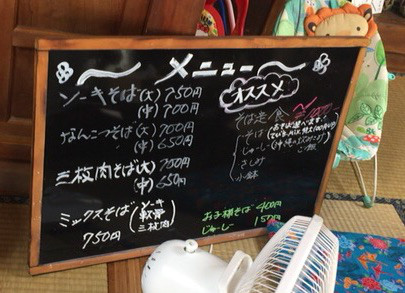 メニュー
ソーキそば(大) 750円
(中) 700円
なんこつそば(大) 700円
(中) 650円
三枚肉そば(大) 700円
(中) 650円
ミックスそば(ソーキ
軟骨
三枚肉)
750円
オススメ
そば定食
そば
じゅーしー
さしみ
小鉢
お子様そば 400円
じゅーしー 150円